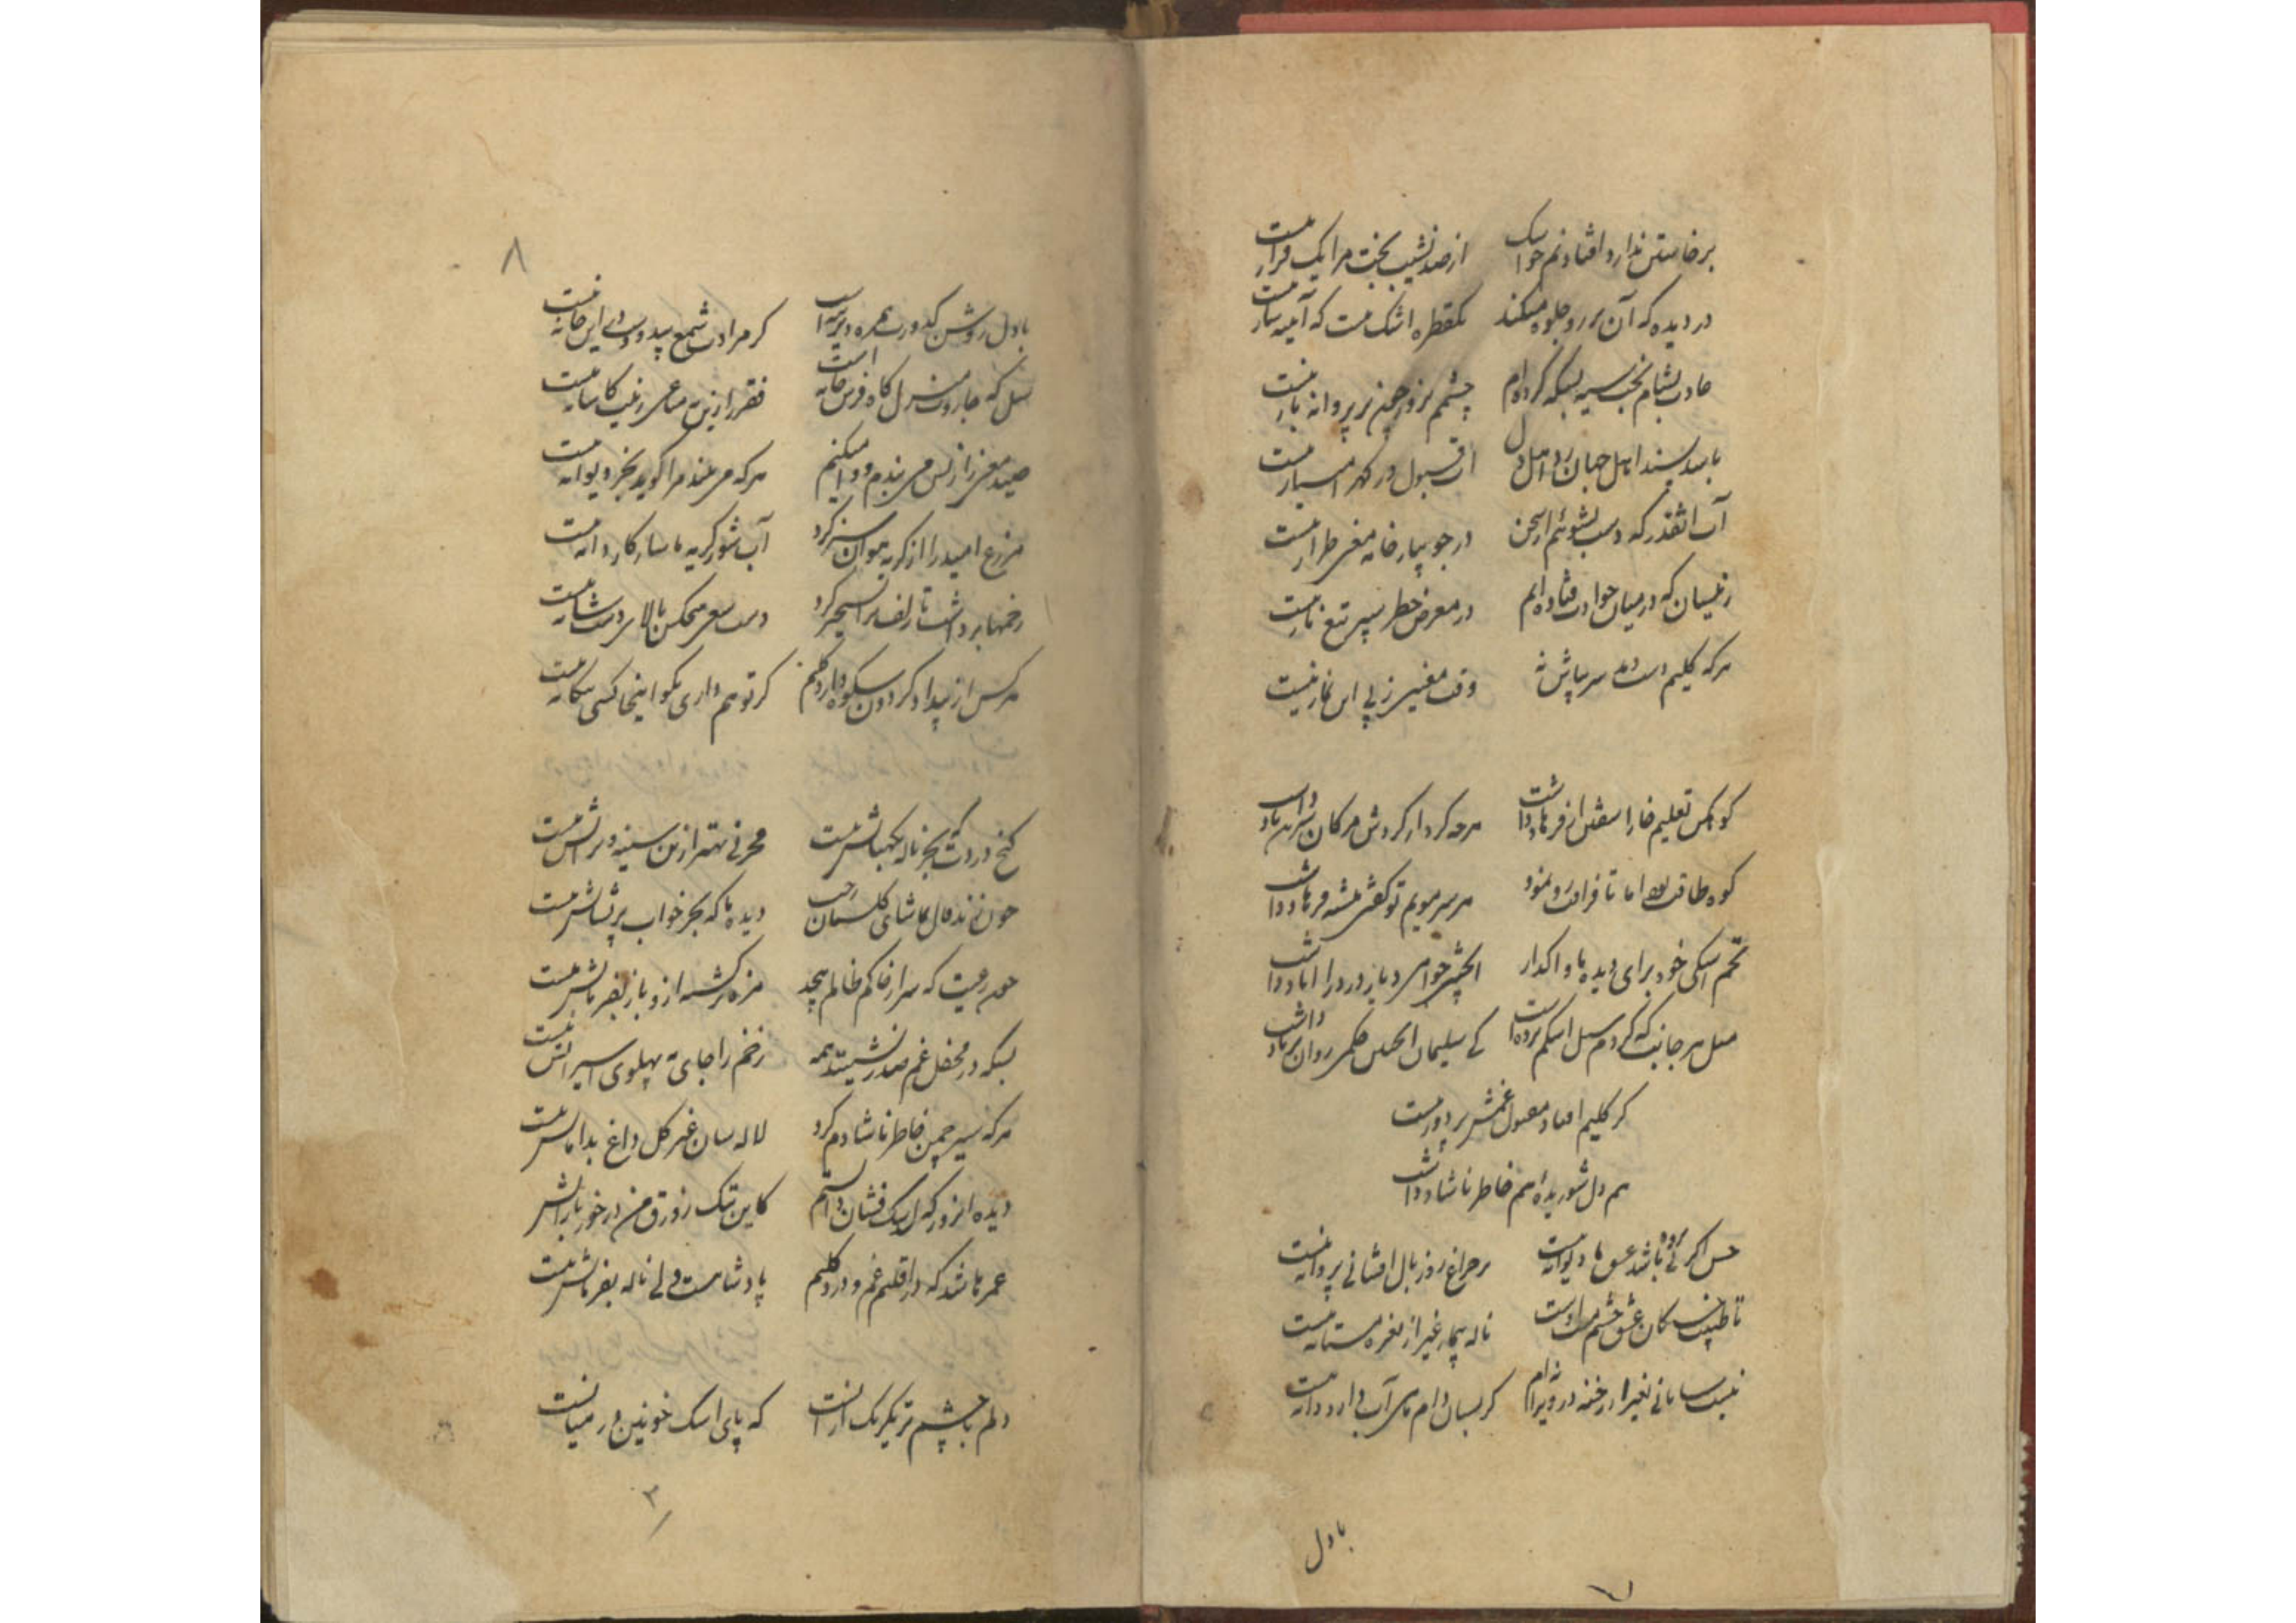 برخاستن ندارد افتادنم چو اشک از صد نشیب بخت مرا یک فراز نیست
در دیده که آن پری رو جلوه میکند یکقطره اشک نیست که آیینه ساز نیست
عادت بشام بخت سیه بسکه کرده‌ام چشمم بروز همچو پر پروانه باز نیست
ناید پسند اهل جهان رد اهل دل
آب آنقدر که دست بشوئیم از سخن در جویبار خامه معنی طراز نیست
زینسان که در میان حوادث فتاده‌ایم در معرض خطر سپر تیغ باز نیست
هر که کلیم دست دهد سر بپاش نه وقت معین ز پی این نماز نیست
کوهکن تعلیم خارا سفتن از فرهاد داشت هرچه کرد از کردش مژکان
کوه طاقت بود اما تا فراقت رو نمود هر سر مویم تو گفتی تیشه فرهاد داشت
تخم اشکی خود برای دیده ما واگذار آنچشم دریا در را آباد داشت
میل هر جانب که کردم سیل اشکم برده است کی سلیمان اینچنین حکمی روان بر باد داشت
گر کلیم افتاد مقبول غمش پر دور نیست
هم دل شوریده هم خاطر ناشاد داشت
حسن اگر بی پرده باشد عشق ما دیوانه نیست بر چراغ روز بال افشانی پروانه نیست
تا طبیب خستگان عشق چشم مست اوست ناله بیمار غیر از نعره مستانه نیست
نیست سامانی بغیر از رخنه در ویرانه‌ام گر بسان دام آب دارد دانه نیست
بادل
۷
۸
بادل روشن کدورت همره دیرینه است گر مرادت شمع بیدودست در این خانه نیست
سیل که جاروب منزل گاه فرش خانه است فقر را زین به متاعی زینت کاشانه نیست
صید معنی را ز بس می‌بندم و وا میکنم هر که می‌بیند مرا گوید بجز دیوانه نیست
مزرع امید را از گریه نتوان سبز کرد آب شور گریه ما سازگار دانه نیست
زخمها برداشت تا زلف ترا تسخیر کرد دست سعی هیچکس بالای دست شانه نیست
هر کس از بیداد گردون شکوه دارد کلیم گر تو هم داری بگو اینجا کسی بیگانه نیست
گنج دردت که بجز ناله نگهبانش نیست مخزنی بهتر ازین سینه ویرانش نیست
چون نزند فال تماشای گلستان رخت دیده ما که بجز خواب پریشانش نیست
چه رعیت که سر از حاکم ظالم پیچد مژه برگشته ازو باز بفرمانش نیست
بسکه در محفل غم صدرنشینند همه زخم را جای به پهلوی اسیرانش نیست
هر که سیر چمن خاطر ناشادم کرد لاله سان غیر گل داغ بدامانش نیست
دیده آنروز که اشک فشان دانستم کاین تنک زورق من در خور بارانش نیست
عمرها شد که در اقلیم غم و درد کلیم پادشاهست ولی ناله بفرمانش نیست
دلم با چشم تر یکرنگ از آنست که پای اشک خونین در میانست
۲